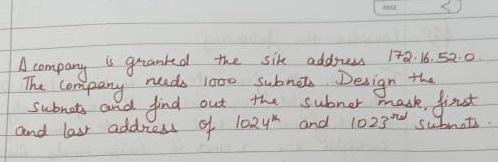 A company is granted the site address 172.16.52.0.
The company needs 1000 subnets. Design the
subnets and find out the subnet mask, first
and last address of 1024th and 1023rd subnets.